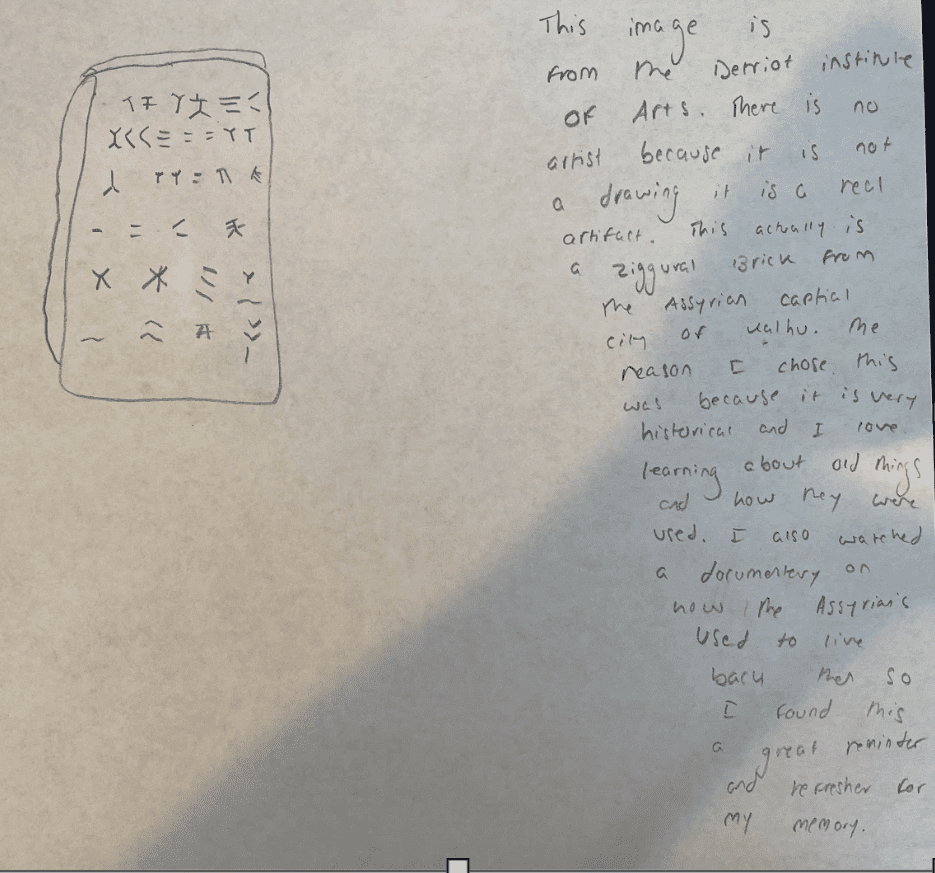 This image is
from the Detriot institute
OF Arts. There is no
artist because it is not
a drawing it is a real
artifact. This actually is
a ziggurat Brick from
the Assyrian captial
city of Kalhu. The
reason I chose this
was because it is very
historical and I love
learning about old things
and how they were
used. I also watched
a documentary on
how the Assyrian's
used to live
back then so
I found this
a great reminder
and refresher for
my memory.